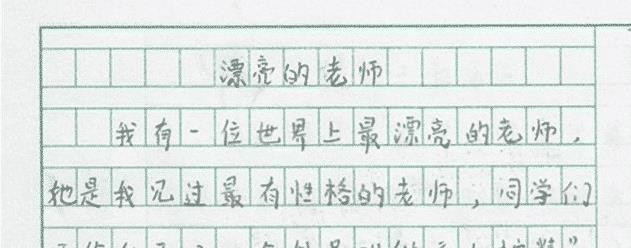 漂亮的老师
我有一位世界上最漂亮的老师，
她是我见过最有性格的老师，同学们